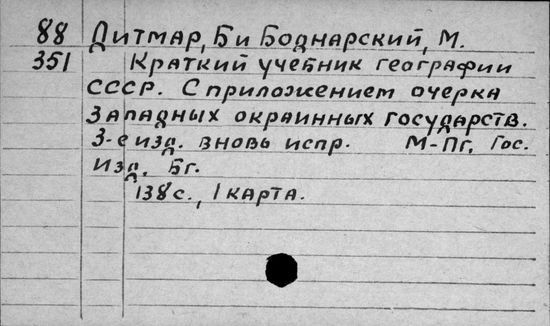 88 Дитмар, Б и Боднарский, М.
351 Краткий учебник географии
СССР. С приложением очерка
Западных окраинных государств.
3-е изд. вновь испр. М-Пг. Гос.
изд. Бг.
138 с., 1 карта.